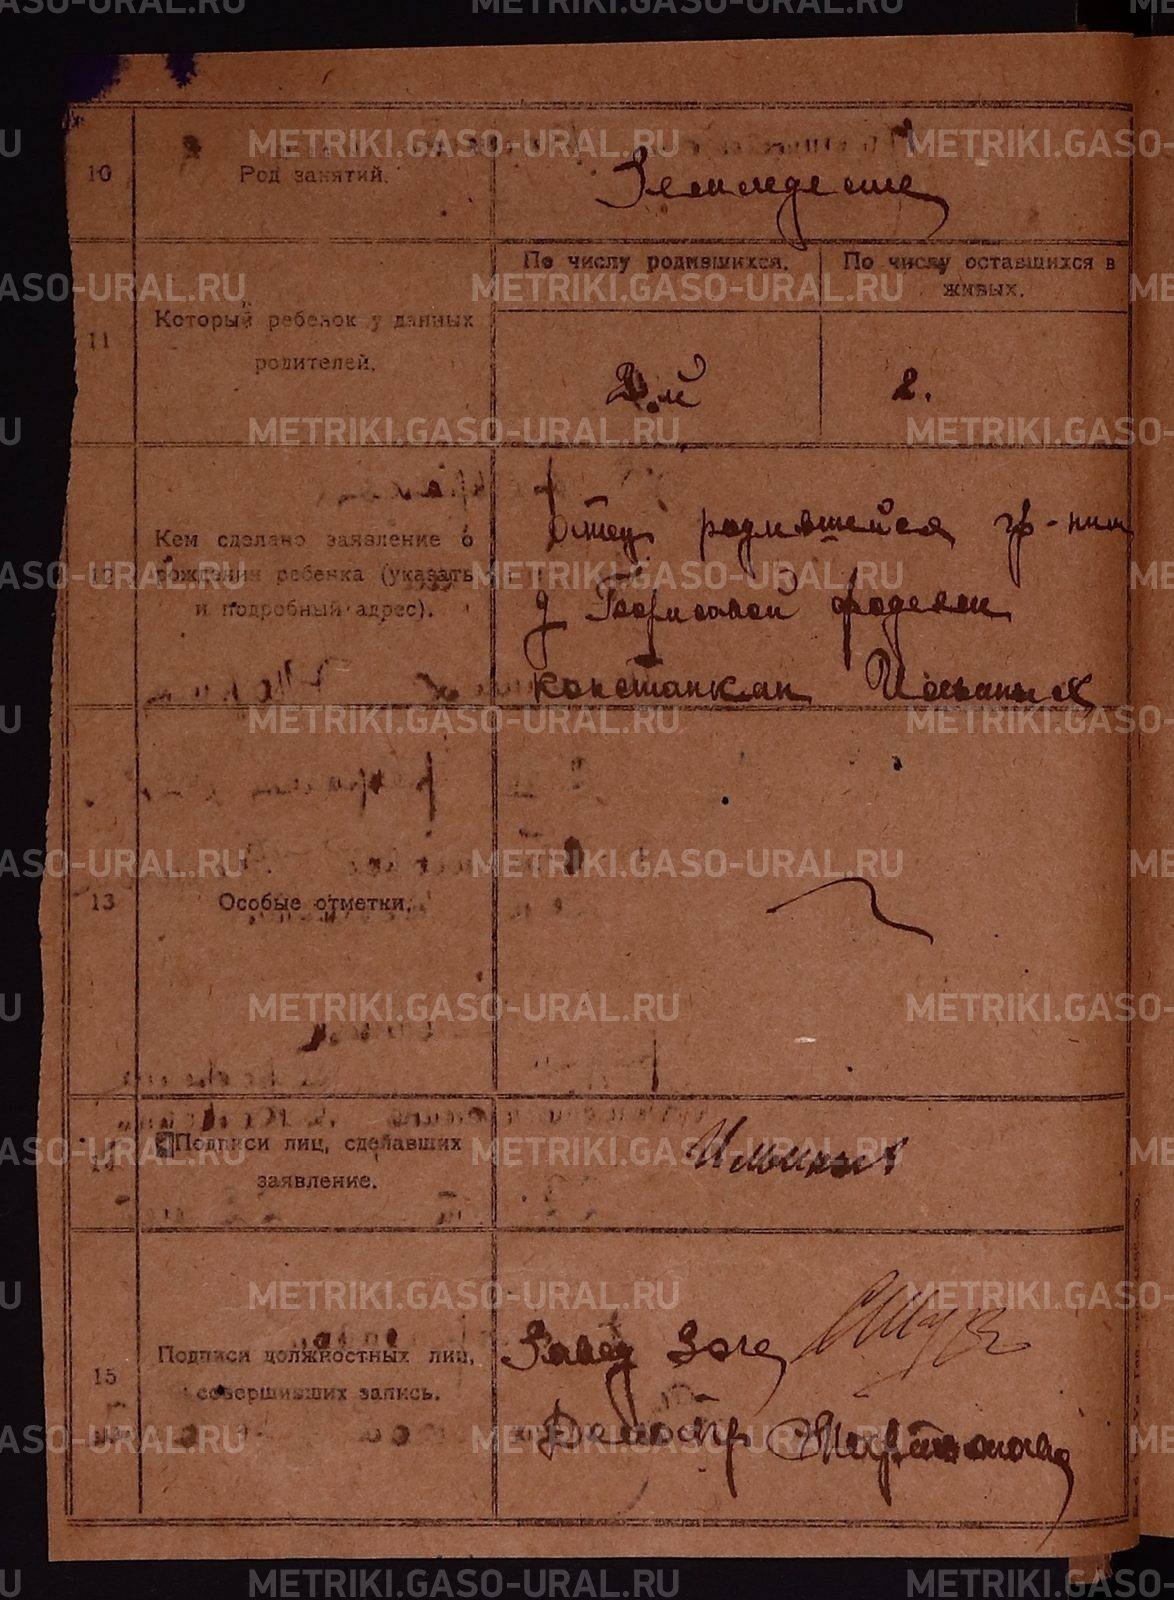 METRIKI.GASO-URAL.RU
10
Род занятий.
Земледелие
11
Который ребенок у данных
родителей.
По числу родившихся.
По числу оставшихся в
живых.
2.й
2.
12
Кем сделано заявление о
рождении ребенка (указать
и подробный адрес).
Отец родившейся гр-нин
д Борисовой
Ильиных
13
Особые отметки.
14
Подписи лиц, сделавших
заявление.
Ильиных
15
Подписи должностных лиц,
совершивших запись.
Завед
Делопр